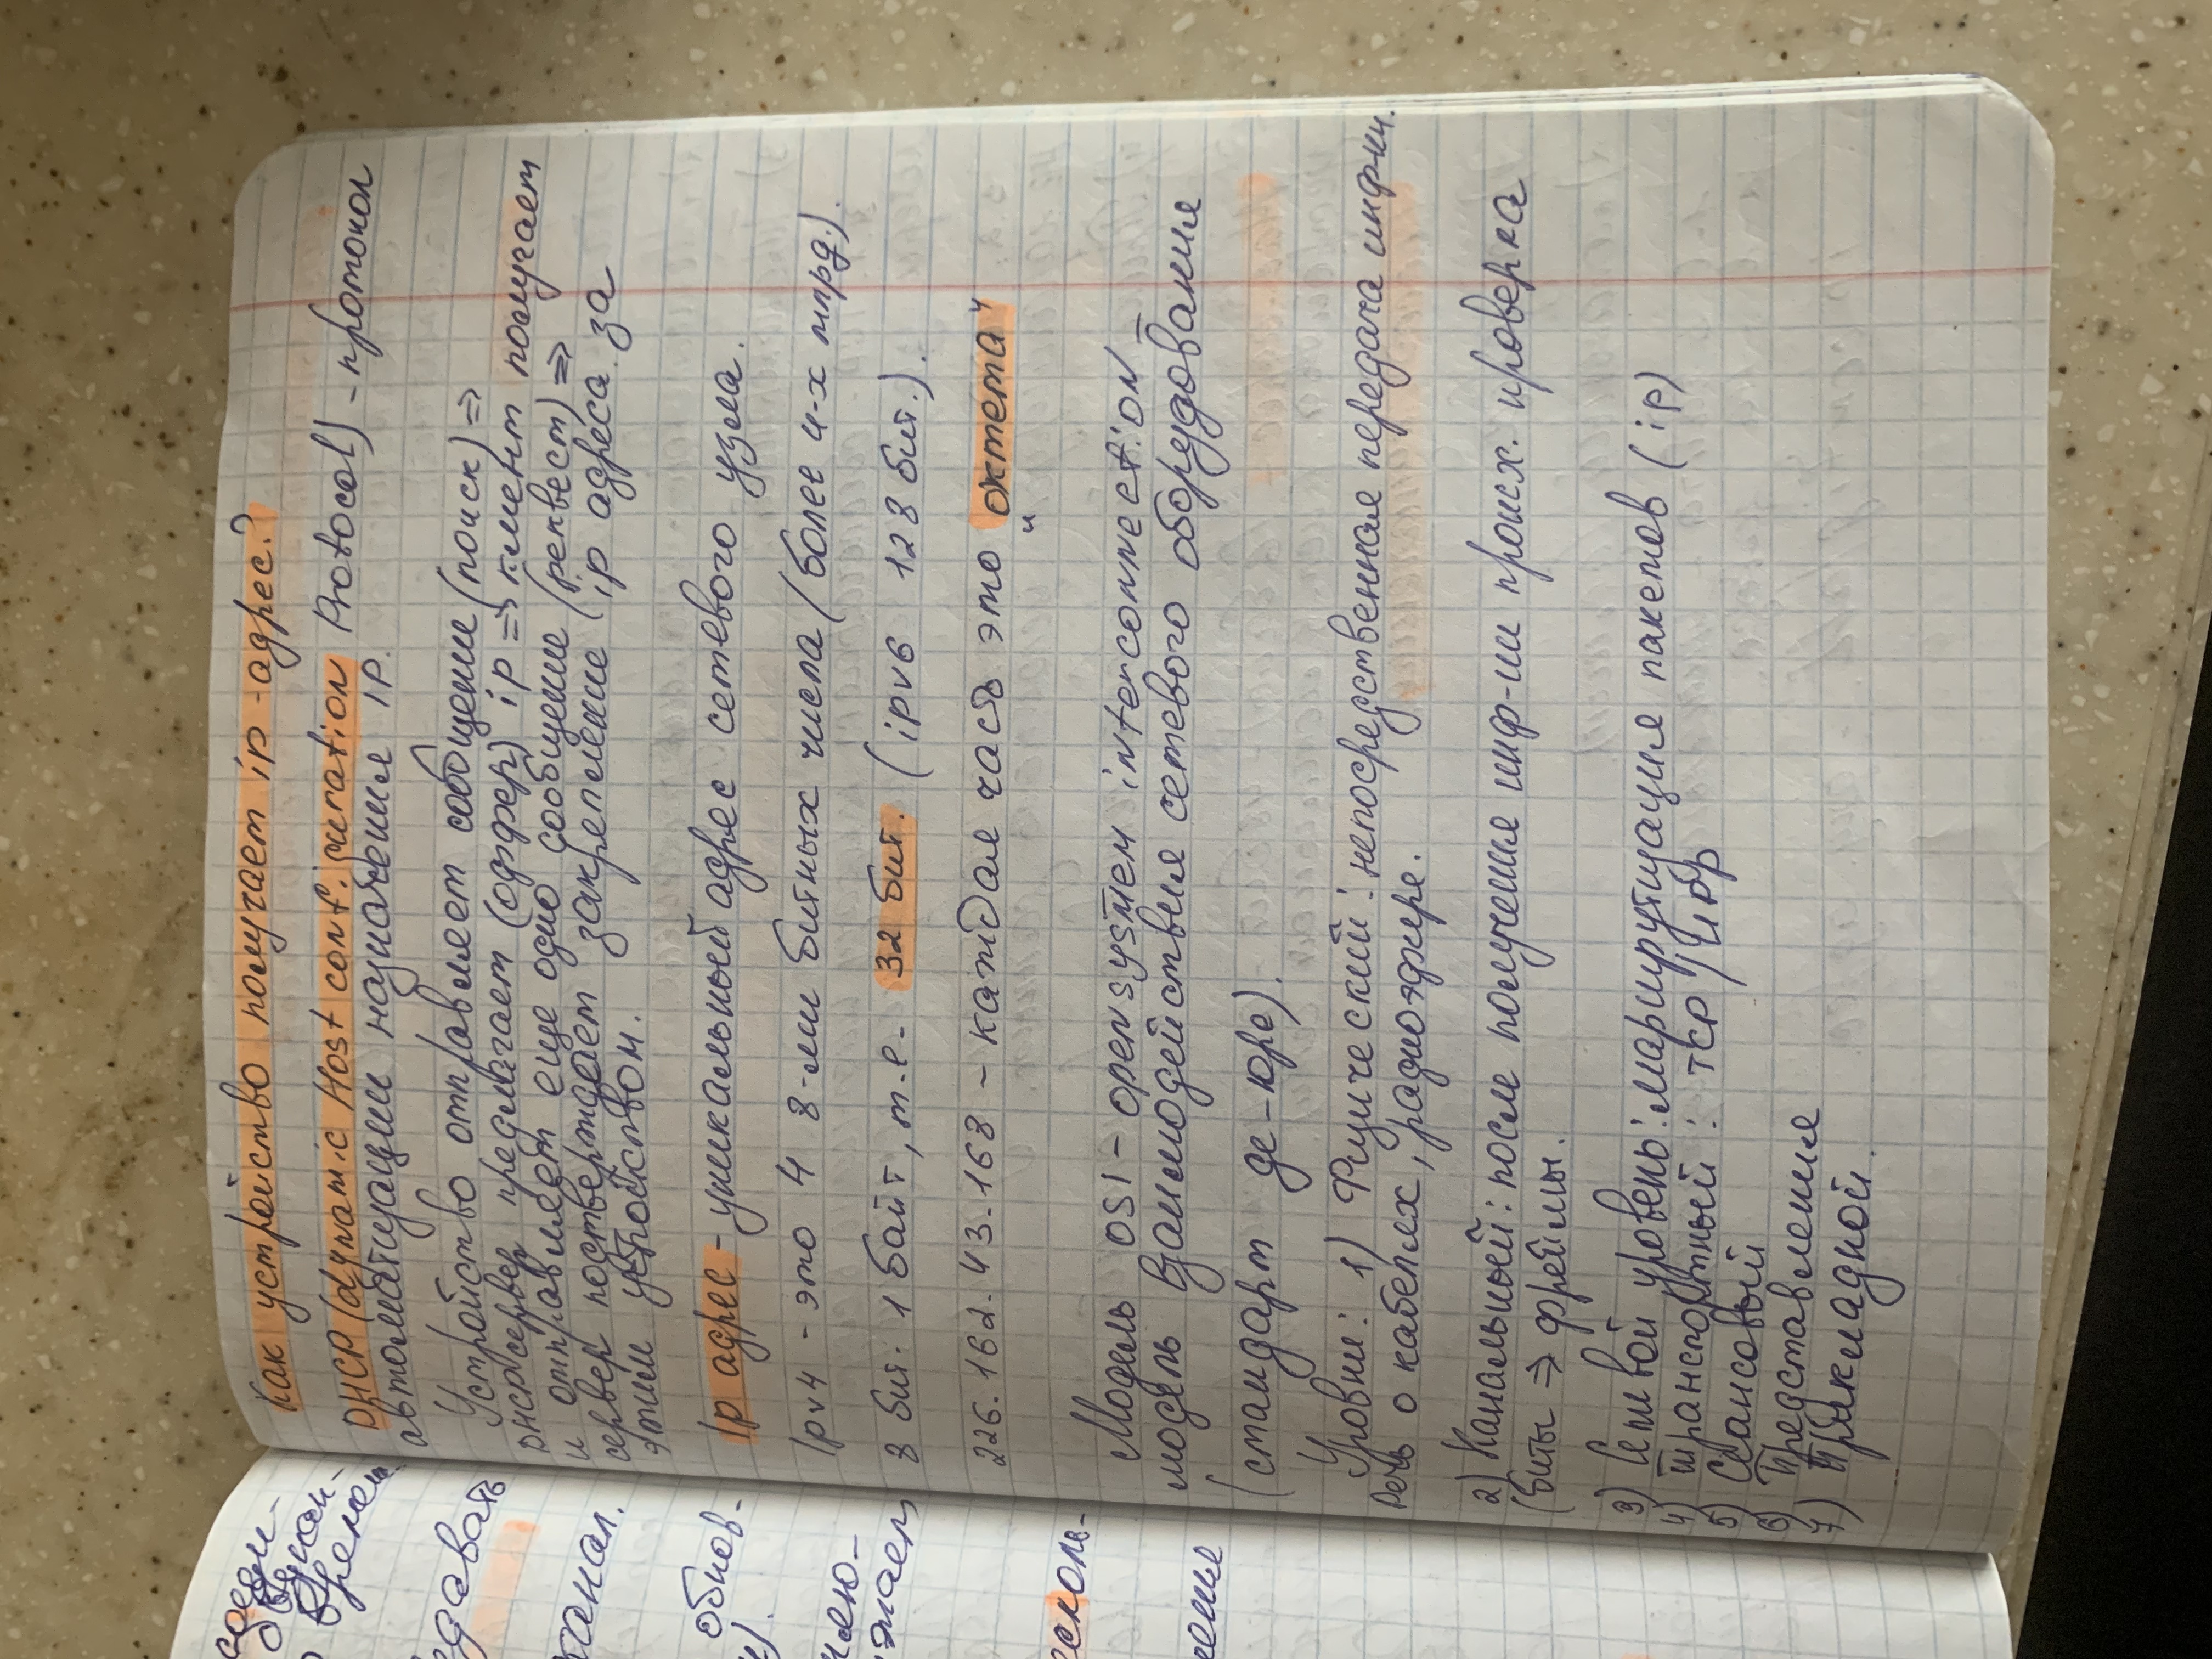 соеди-
двунап-
времен.
едавать
канал.
обнов-
и).
няю-
жает
есколь-
чения
Как устройство получает ip-адрес?
DHCP (dynamic Host configuration Protocol) - протокол
автоматизации назначения IP.
Устройство отправляет сообщение (поиск) ⇒
DHCP сервер предлагает (оффер) ip ⇒ клиент получает
и отправляет еще одно сообщение (реквест) ⇒
сервер подтверждает закрепление ip адреса за
этим устройством.
Ip адрес - уникальный адрес сетевого узла.
Ipv4 - это 4 8-ми битных числа (более 4-х млрд.).
8 бит. 1 байт, т.е. 32 бит. (ipv6 128 бит.).
226.162.43.168 - каждая часть это „октета“
Модель OSI - open system interconnection -
модель взаимодействия сетевого оборудования
(стандарт де-юре).
Уровни: 1) Физический: непосредственная передача инф-ии.
Речь о кабелях, радиоэфире.
2) Канальный: после получения инф-ии происх. проверка
(биты ⇒ фреймы.
3) Сетевой уровень: маршрутизация пакетов (ip)
4) транспортный: TCP / UDP
5) Сеансовый
6) Представления
7) Прикладной.